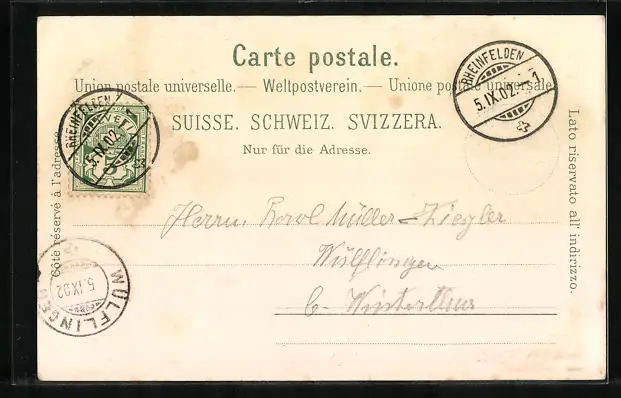 Carte postale.
Union postale universelle. — Weltpostverein. — Unione postale universale
SUISSE. SCHWEIZ. SVIZZERA.
Nur für die Adresse.
Côté réservé à l'adresse.
Lato riservato all' indirizzo.
RHEINFELDEN
5.IX.02.–1
RHEINFELDEN
5.IX.02.
Herrn Müller-Ziegler
Wülflingen
b. Winterthur
WÜLFLINGEN
5.IX.02